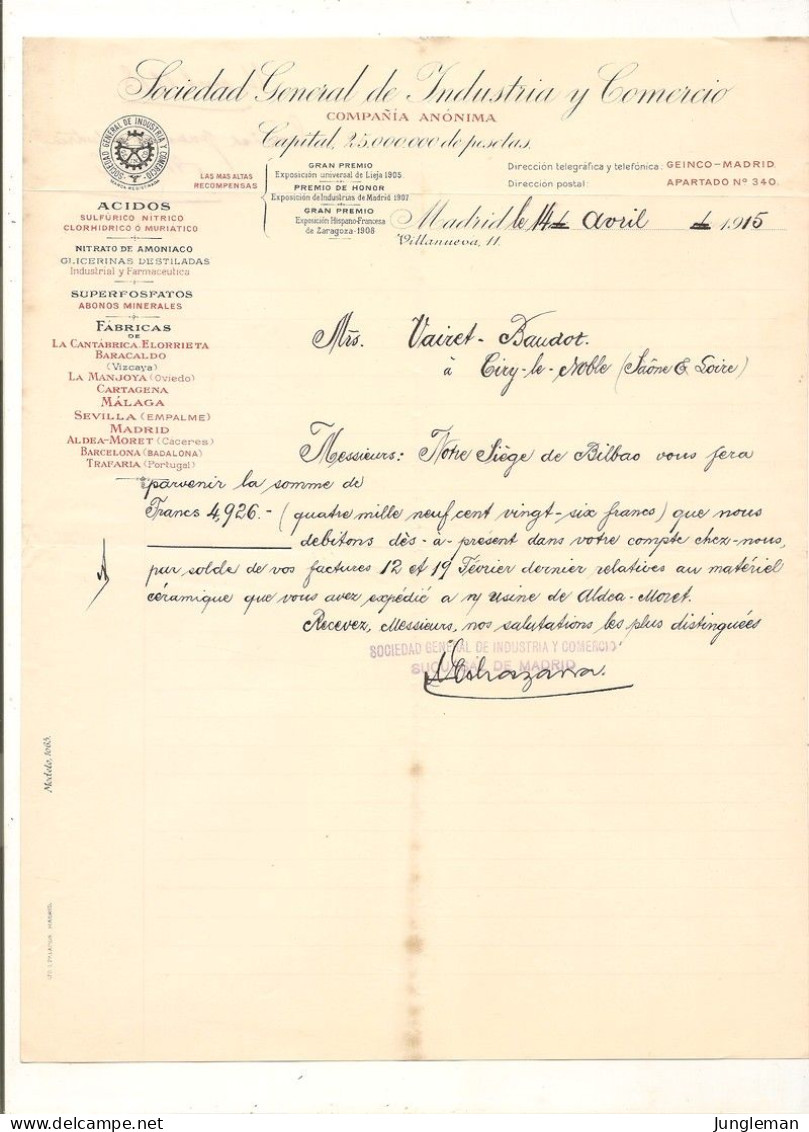 Sociedad General de Industria y Comercio
COMPAÑIA ANÓNIMA
Capital, 25.000.000 de pesetas.
SOCIEDAD GENERAL DE INDUSTRIA Y COMERCIO
MARCA REGISTRADA
LAS MAS ALTAS
RECOMPENSAS
GRAN PREMIO
Exposición universal de Lieja 1905
PREMIO DE HONOR
Exposición de Industrias de Madrid 1907
GRAN PREMIO
Exposición Hispano-Francesa
de Zaragoza-1908
Dirección telegráfica y telefónica: GEINCO-MADRID.
Direccion postal: APARTADO Nº 340.
Madrid, le 14 avril 1915
Villanueva, 11.
ACIDOS
SULFÚRICO NÍTRICO
CLORHIDRICO Ó MURIATICO
NITRATO DE AMONIACO
GLICERINAS DESTILADAS
Industrial y Farmaceutica
SUPERFOSFATOS
ABONOS MINERALES
FÁBRICAS
DE
LA CANTÁBRICA.ELORRIETA
BARACALDO
(Vizcaya)
LA MANJOYA (Oviedo)
CARTAGENA
MÁLAGA
SEVILLA (EMPALME)
MADRID
ALDEA-MORET (Cáceres)
BARCELONA (BADALONA)
TRAFARIA (Portugal)
Mrs. Vairet-Baudot.
à Ciry-le-Noble (Saône & Loire)
Messieurs: Notre Siège de Bilbao vous fera
parvenir la somme de
Francs 4,926.- (quatre mille neuf cent vingt-six francs) que nous
debitons dès-à-présent dans votre compte chez-nous,
par solde de vos factures 12 et 19 Février dernier relatives au matériel
céramique que vous avez expédié a n/ usine de Aldea-Moret.
Recevez, Messieurs, nos salutations les plus distinguées
SOCIEDAD GENERAL DE INDUSTRIA Y COMERCIO
SUCURSAL DE MADRID
Modelo, 1085.
delcampe.net
jungleman